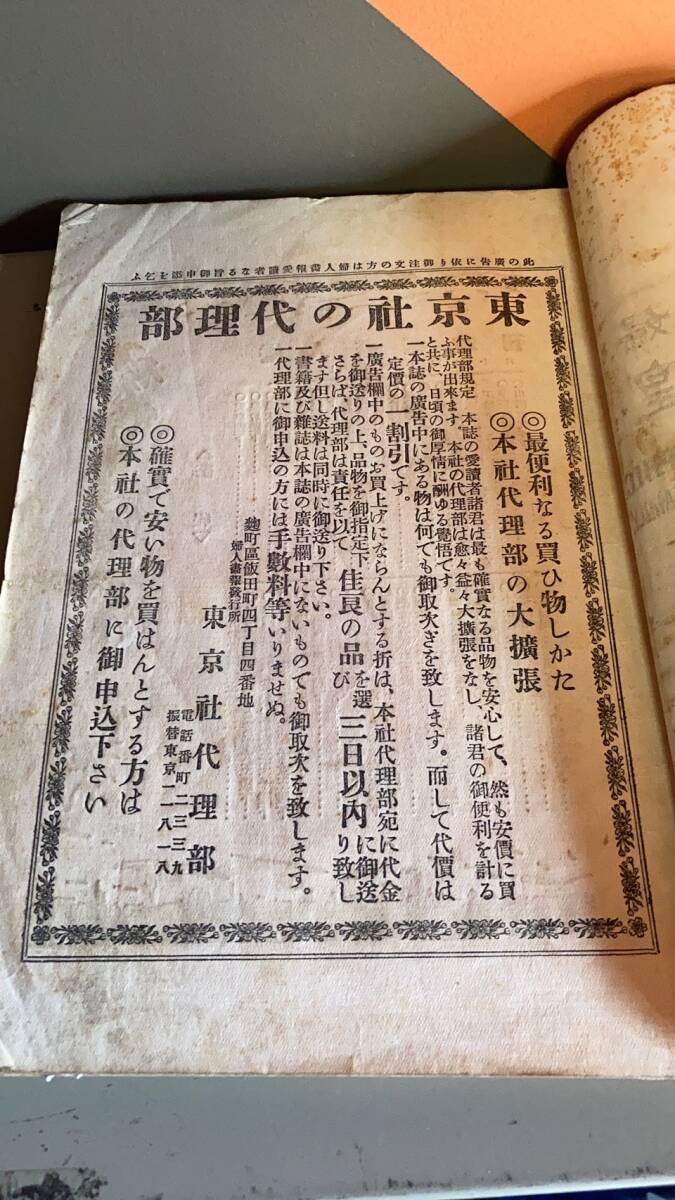 此の廣告に依り御注文の方は婦人畫報愛讀者なる旨御申添を乞ふ
東京社の代理部
◎最便利なる買ひ物しかた
◎本社代理部の大擴張
代理部規定 本誌の愛讀者諸君は最も確實なる品物を安心して、然も安價に買
ふ事が出來ます。本社の代理部は愈々益々大擴張をなし、諸君の御便利を計る
と共に、日頃の御厚情に酬ゆる覺悟です。
一本誌の廣告中にある物は何でも御取次ぎを致します。而して代價は
定價の一割引です。
一廣告欄中のものお買上げにならんとする折は、本社代理部宛に代金
を御送りの上、品物を御指定下さらば、代理部は責任を以て佳良の品を選び三日以内に御送り致し
ます但し送料は同時に御送り下さい。
一書籍及び雜誌は本誌の廣告欄中にないものでも御取次を致します。
一代理部に御申込の方には手數料等いりませぬ。
麹町區飯田町四丁目四番地
婦人畫報發行所
東京社代理部
電話番町二三三九
振替東京二八一八
◎確實で安い物を買はんとする方は
◎本社の代理部に御申込下さい